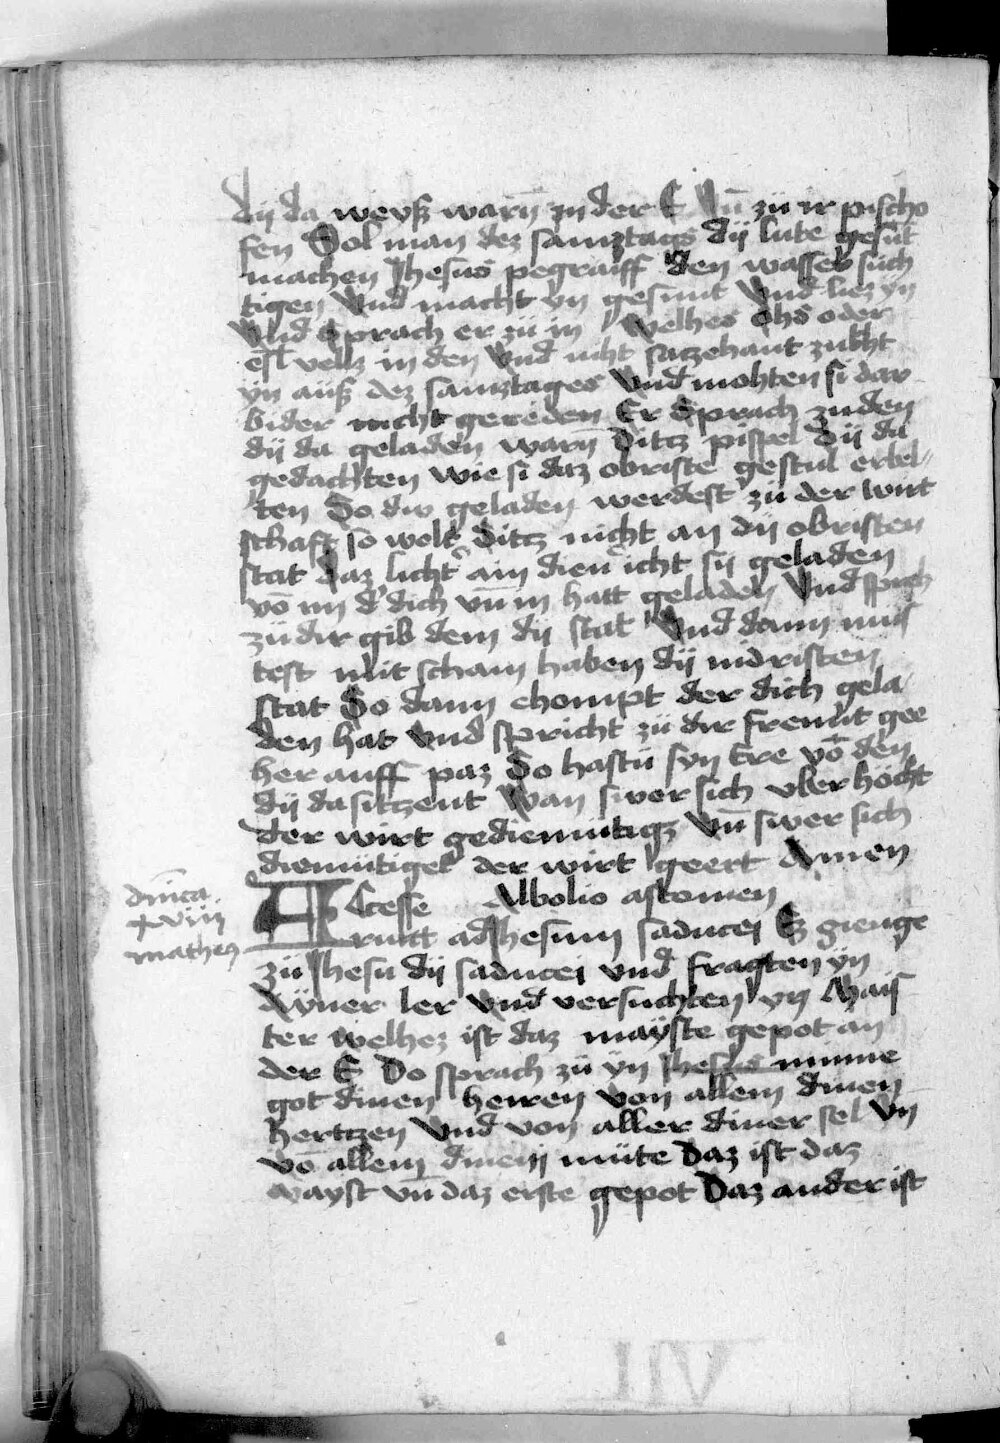 dÿ da weyß warn̄ jn der E Vn̄ zü ir pischo
fen Sol man dez samztags dÿ lute gesut
machen Jhesus pegraiff den wasser süch
tigen Vnd macht yn gesunt Vnd liez yn
Vnd Sprach er zü in Welhes ohs oder
esl vellz in den Vnd niht satzehant zukht
ÿn aüß dez samztages Vnd mohten si dar
bider nicht gereden Er Sprach zuden
dÿ da geladen warn̄ Ditz pispel dÿ da
gedachten wie si daz obriste gestül erbel
ten So dw geladen werdest zü der wirt
schaft so wolt Ditz nicht an dÿ obristen
stat Daz licht ain dieu icht sÿ geladen
vō im d' dich vn̄ in hatt geladen Vnd sprch
zü dir gib dem dÿ stat Vnd dann müs
test mit scham haben dÿ nidristen
stat So dann chompt der dich gela
den hat vnd spricht zü dir freuut gee
her auff paz So hastü syn Ere vō den
dÿ da sitzent Wan swer sich vber höcht
der wirt gediemutigz Vn̄ swer sich
diemütiget der wirt geert Amen
dn̄ica
xviij
mathey
Accesse Vbolio astomen
runtt ad Jhesum saducei Ez gienge
zü Jhesu dÿ saducei vnd fragten ÿn
Aÿner ler Vnd versuchten yn Mais
ter welhez ist daz mayste gepot an
der E Do sprach zü ÿn Jhesus minne
got dinen herren von allem dinen
hertzen Vnd von aller diner sel Vn
vō allem dinem müte Daz ist daz
mayst vn̄ daz erste gepot Daz ander ist